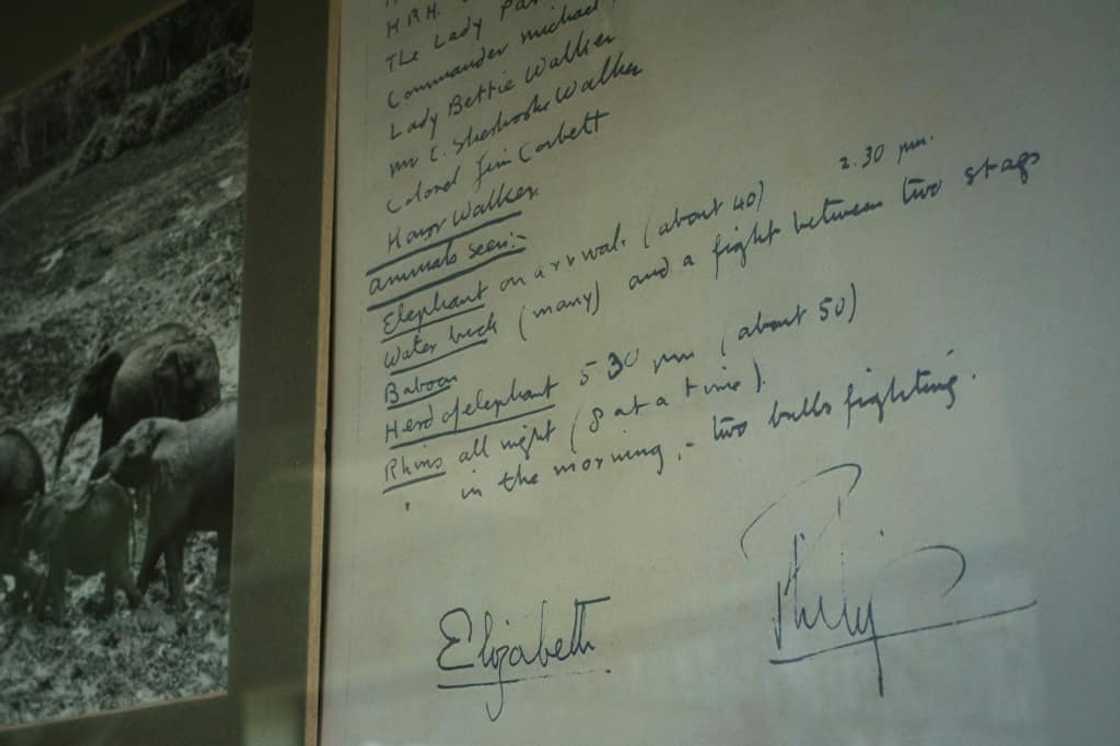 H.R.H.
The Lady Pam
Commander Michael
Lady Bettie Walker
Mr E. Sherbrooke Walker
Colonel Jim Corbett
Honor Walker
Animals seen:-
Elephant on arrival. (about 40) 2.30 pm.
Water buck (many) and a fight between two stags
Baboon
Herd of elephant 5 30 pm (about 50)
Rhino all night (8 at a time).
" in the morning, - two bulls fighting.
Elizabeth
Philip